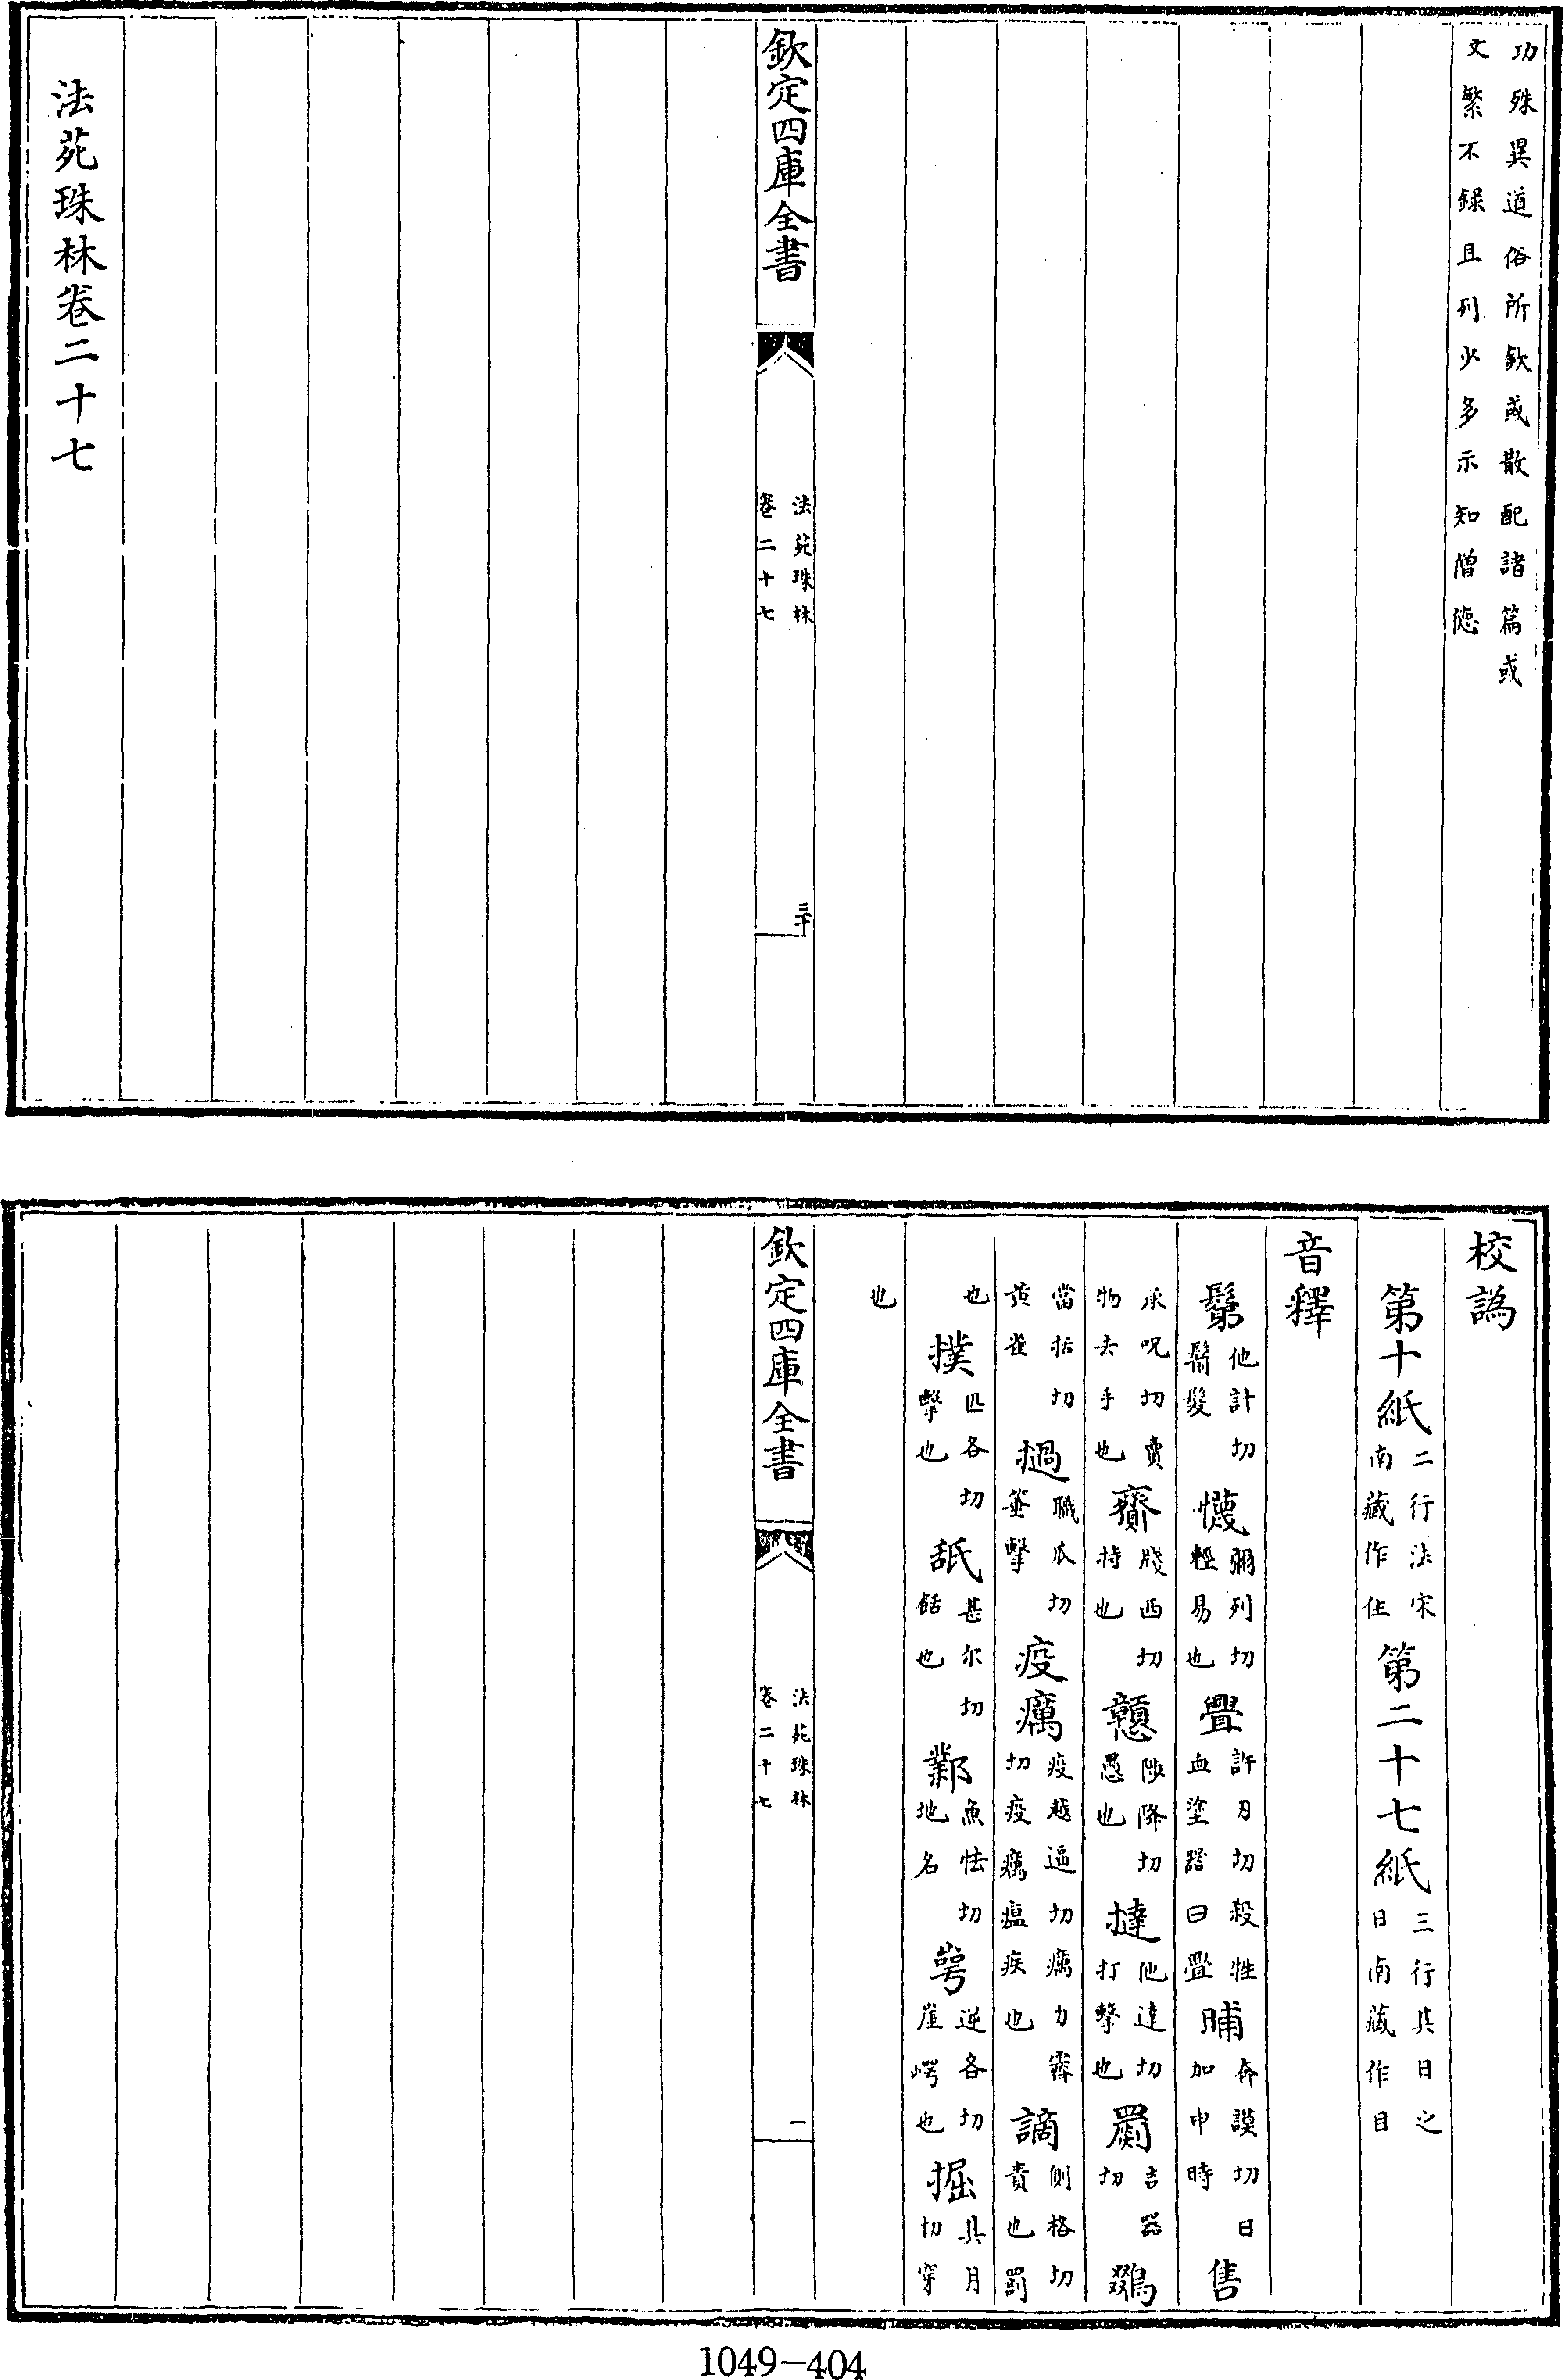 功殊異道俗所欽或散配諸篇或
文繁不錄且列少多示知僧德
欽定四庫全書
法苑珠林
卷二十七
三十
法苑珠林卷二十七
校譌
第十紙二行法宋南藏作住第二十七紙三行其日之日南藏作目
音釋
鬀他計切鬄髮懱彌列切輕易也舋許刃切殺牲血塗器曰舋晡奔謨切日加申時售
承呪切賣物去手也齎牋西切持也戇陟降切愚也撻他達切打擊也罽吉器切鵽
當括切黃雀撾職瓜切箠擊疫癘疫越逼切癘力霽切疫癘瘟疾也謫側格切責也罰
也撲匹各切擊也舐甚尔切餂也鄴魚怯切地名崿逆各切崖崿也掘具月切穿
也
欽定四庫全書
法苑珠林
卷二十七
一
1049-404